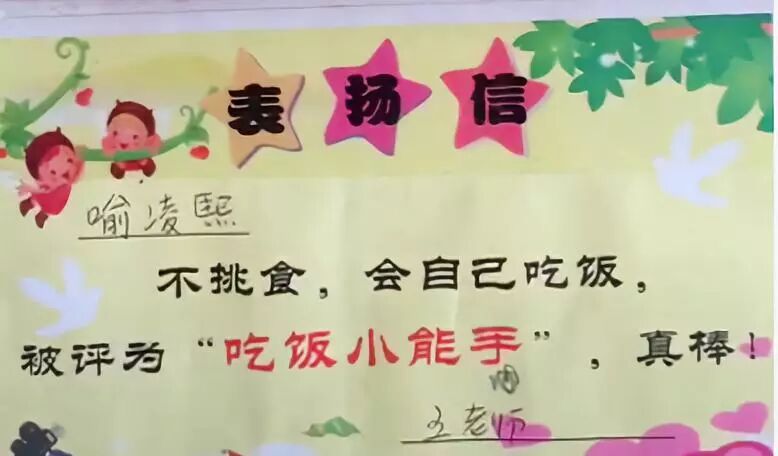 表扬信
喻凌熙
不挑食，会自己吃饭，
被评为“吃饭小能手”，真棒！
王老师